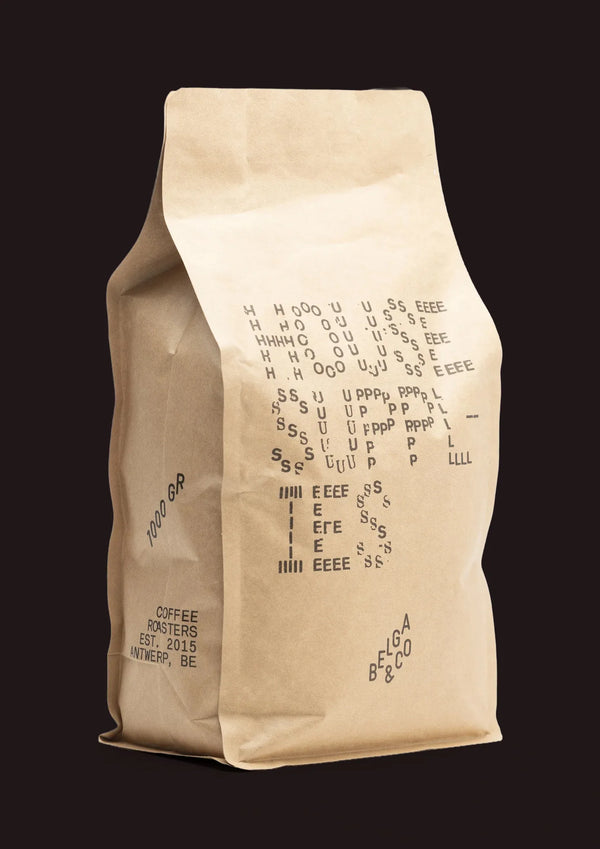 HOUSE
SUPPL–
IES
1000 GR
COFFEE
ROASTERS
EST. 2015
ANTWERP, BE
BELGA
&CO